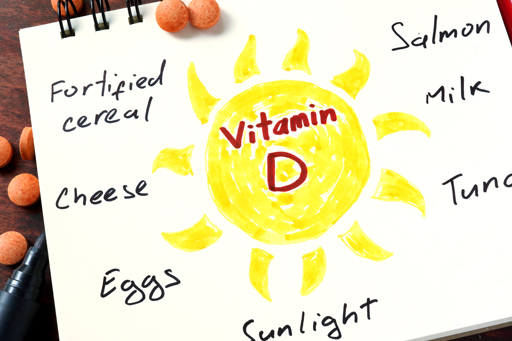 Fortified
cereal
Salmon
Milk
Vitamin
D
Cheese
Tuna
Eggs
Sunlight